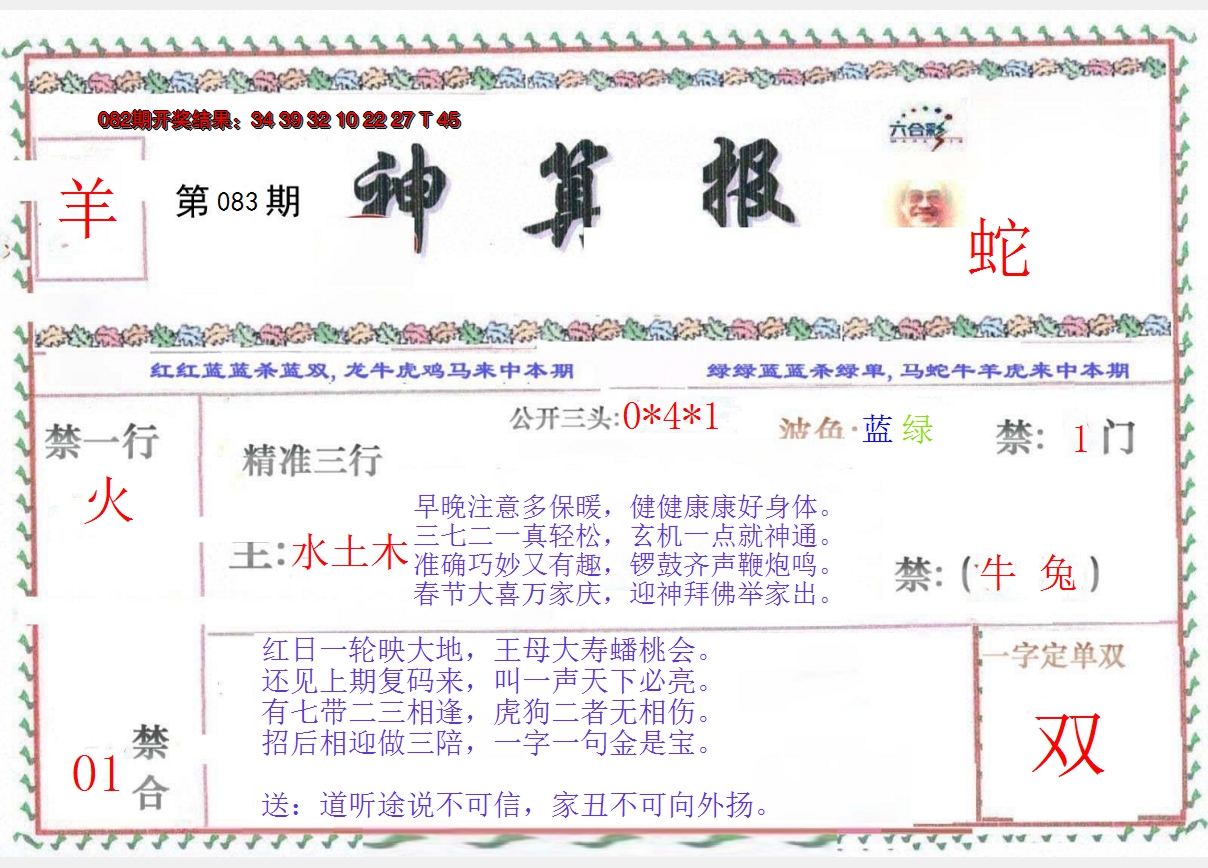 082期开奖结果：34 39 32 10 22 27 T 45
六合彩
羊
第083期
神算报
蛇
红红蓝蓝杀蓝双,龙牛虎鸡马来中本期
绿绿蓝蓝杀绿单,马蛇牛羊虎来中本期
禁一行
火
公开三头:0*4*1
波色:蓝 绿
禁: 1门
精准三行
主:水土木
早晚注意多保暖，健健康康好身体。
三七二一真轻松，玄机一点就神通。
准确巧妙又有趣，锣鼓齐声鞭炮鸣。
春节大喜万家庆，迎神拜佛举家出。
禁:(牛 兔)
红日一轮映大地，王母大寿蟠桃会。
还见上期复码来，叫一声天下必亮。
有七带二三相逢，虎狗二者无相伤。
招后相迎做三陪，一字一句金是宝。
送：道听途说不可信，家丑不可向外扬。
01
禁合
一字定单双
双